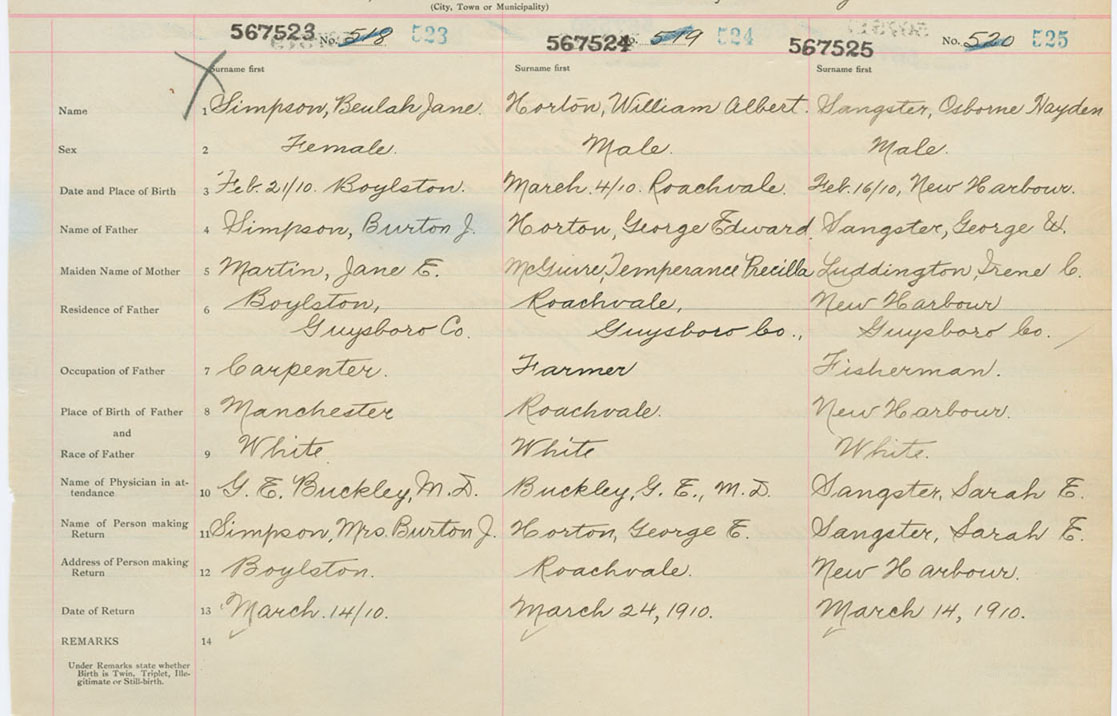 (City, Town or Municipality)
567523 No. 518 523 567524 No. 519 524 567525 No. 520 525
Surname first Surname first Surname first
Name 1 Simpson, Beulah Jane. Horton, William Albert. Sangster, Osborne Hayden
Sex 2 Female. Male. Male.
Date and Place of Birth 3 Feb. 21/10. Boylston. March. 4/10. Roachvale. Feb. 16/10, New Harbour.
Name of Father 4 Simpson, Burton J. Horton, George Edward. Sangster, George
Maiden Name of Mother 5 Martin, Jane E. McGuire, Temperance Precilla Luddington, Irene C.
Residence of Father 6 Boylston, Roachvale, New Harbour
Guysboro Co. Guysboro Co., Guysboro Co.
Occupation of Father 7 Carpenter. Farmer Fisherman.
Place of Birth of Father 8 Manchester Roachvale. New Harbour.
and
Race of Father 9 White White White.
Name of Physician in at-
tendance 10 G. E. Buckley, M.D. Buckley, G. E., M.D. Sangster, Sarah E.
Name of Person making
Return 11 Simpson, Mrs. Burton J. Horton, George E. Sangster, Sarah E.
Address of Person making
Return 12 Boylston. Roachvale. New Harbour.
Date of Return 13 March. 14/10. March 24, 1910. March 14, 1910.
REMARKS 14
Under Remarks state whether
Birth is Twin, Triplet, Ille-
gitimate or Still-birth.